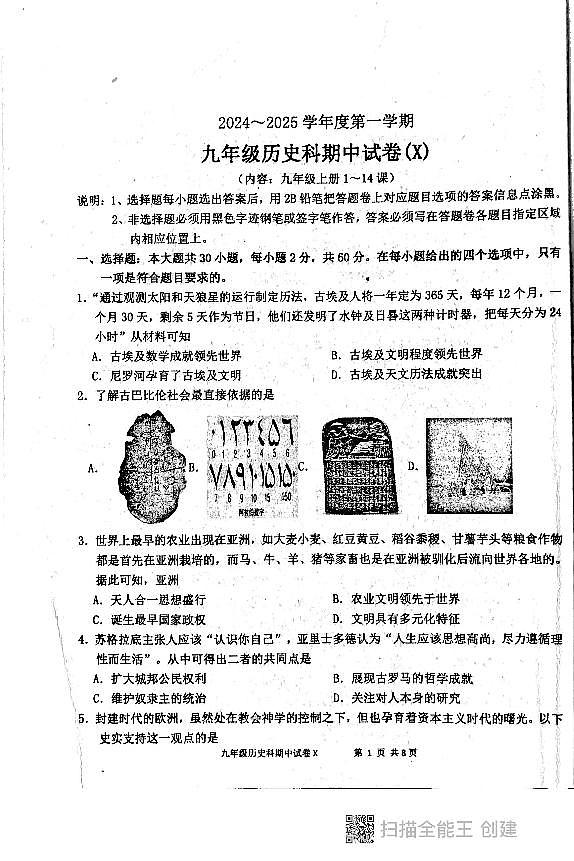 2024～2025 学年度第一学期
九年级历史科期中试卷(X)
(内容：九年级上册 1～14 课)
说明：1、选择题每小题选出答案后，用 2B 铅笔把答题卷上对应题目选项的答案信息点涂黑。
2、非选择题必须用黑色字迹钢笔或签字笔作答，答案必须写在答题卷各题目指定区域
内相应位置上。
一、选择题：本大题共 30 小题，每小题 2 分，共 60 分。在每小题给出的四个选项中，只有
一项是符合题目要求的。
1．“通过观测太阳和天狼星的运行制定历法，古埃及人将一年定为 365 天，每年 12 个月，一
个月 30 天，剩余 5 天作为节日，他们还发明了水钟及日晷这两种计时器，把每天分为 24
小时”从材料可知
A．古埃及数学成就领先世界 B．古埃及文明程度领先世界
C．尼罗河孕育了古埃及文明 D．古埃及天文历法成就突出
2．了解古巴比伦社会最直接依据的是
A． B． C． D．
٠١٢٣٤٥٦
0 1 2 3 4 5 6
7 8 9 10 15 150
阿拉伯数字
3．世界上最早的农业出现在亚洲，如大麦小麦、红豆黄豆、稻谷黍稷、甘薯芋头等粮食作物
都是首先在亚洲栽培的，而马、牛、羊、猪等家畜也是在亚洲被驯化后流向世界各地的。
据此可知，亚洲
A．天人合一思想盛行 B．农业文明领先于世界
C．诞生最早国家政权 D．文明具有多元化特征
4．苏格拉底主张人应该“认识你自己”，亚里士多德认为“人生应该思想高尚，尽力遵循理
性而生活”。从中可得出二者的共同点是
A．扩大城邦公民权利 B．展现古罗马的哲学成就
C．维护奴隶主的统治 D．关注对人本身的研究
5．封建时代的欧洲，虽然处在教会神学的控制之下，但也孕育着资本主义时代的曙光。以下
史实支持这一观点的是
九年级历史科期中试卷 X 第 1 页 共 8 页
扫描全能王 创建